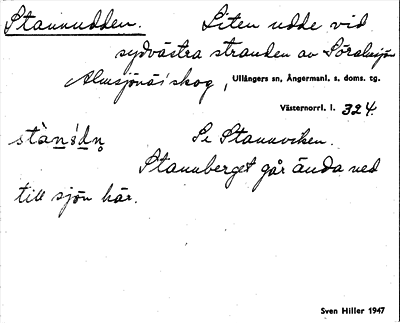 Stannudden. Liten udde vid
sydvästra stranden av Söralsjön
Almsjönäs' skog, Ullångers sn, Ångermanl. s. doms. tg.
Västernorrl. l. 324.
Se Stannviken.
Stannberget går ända ned
till sjön här.
Sven Hiller 1947